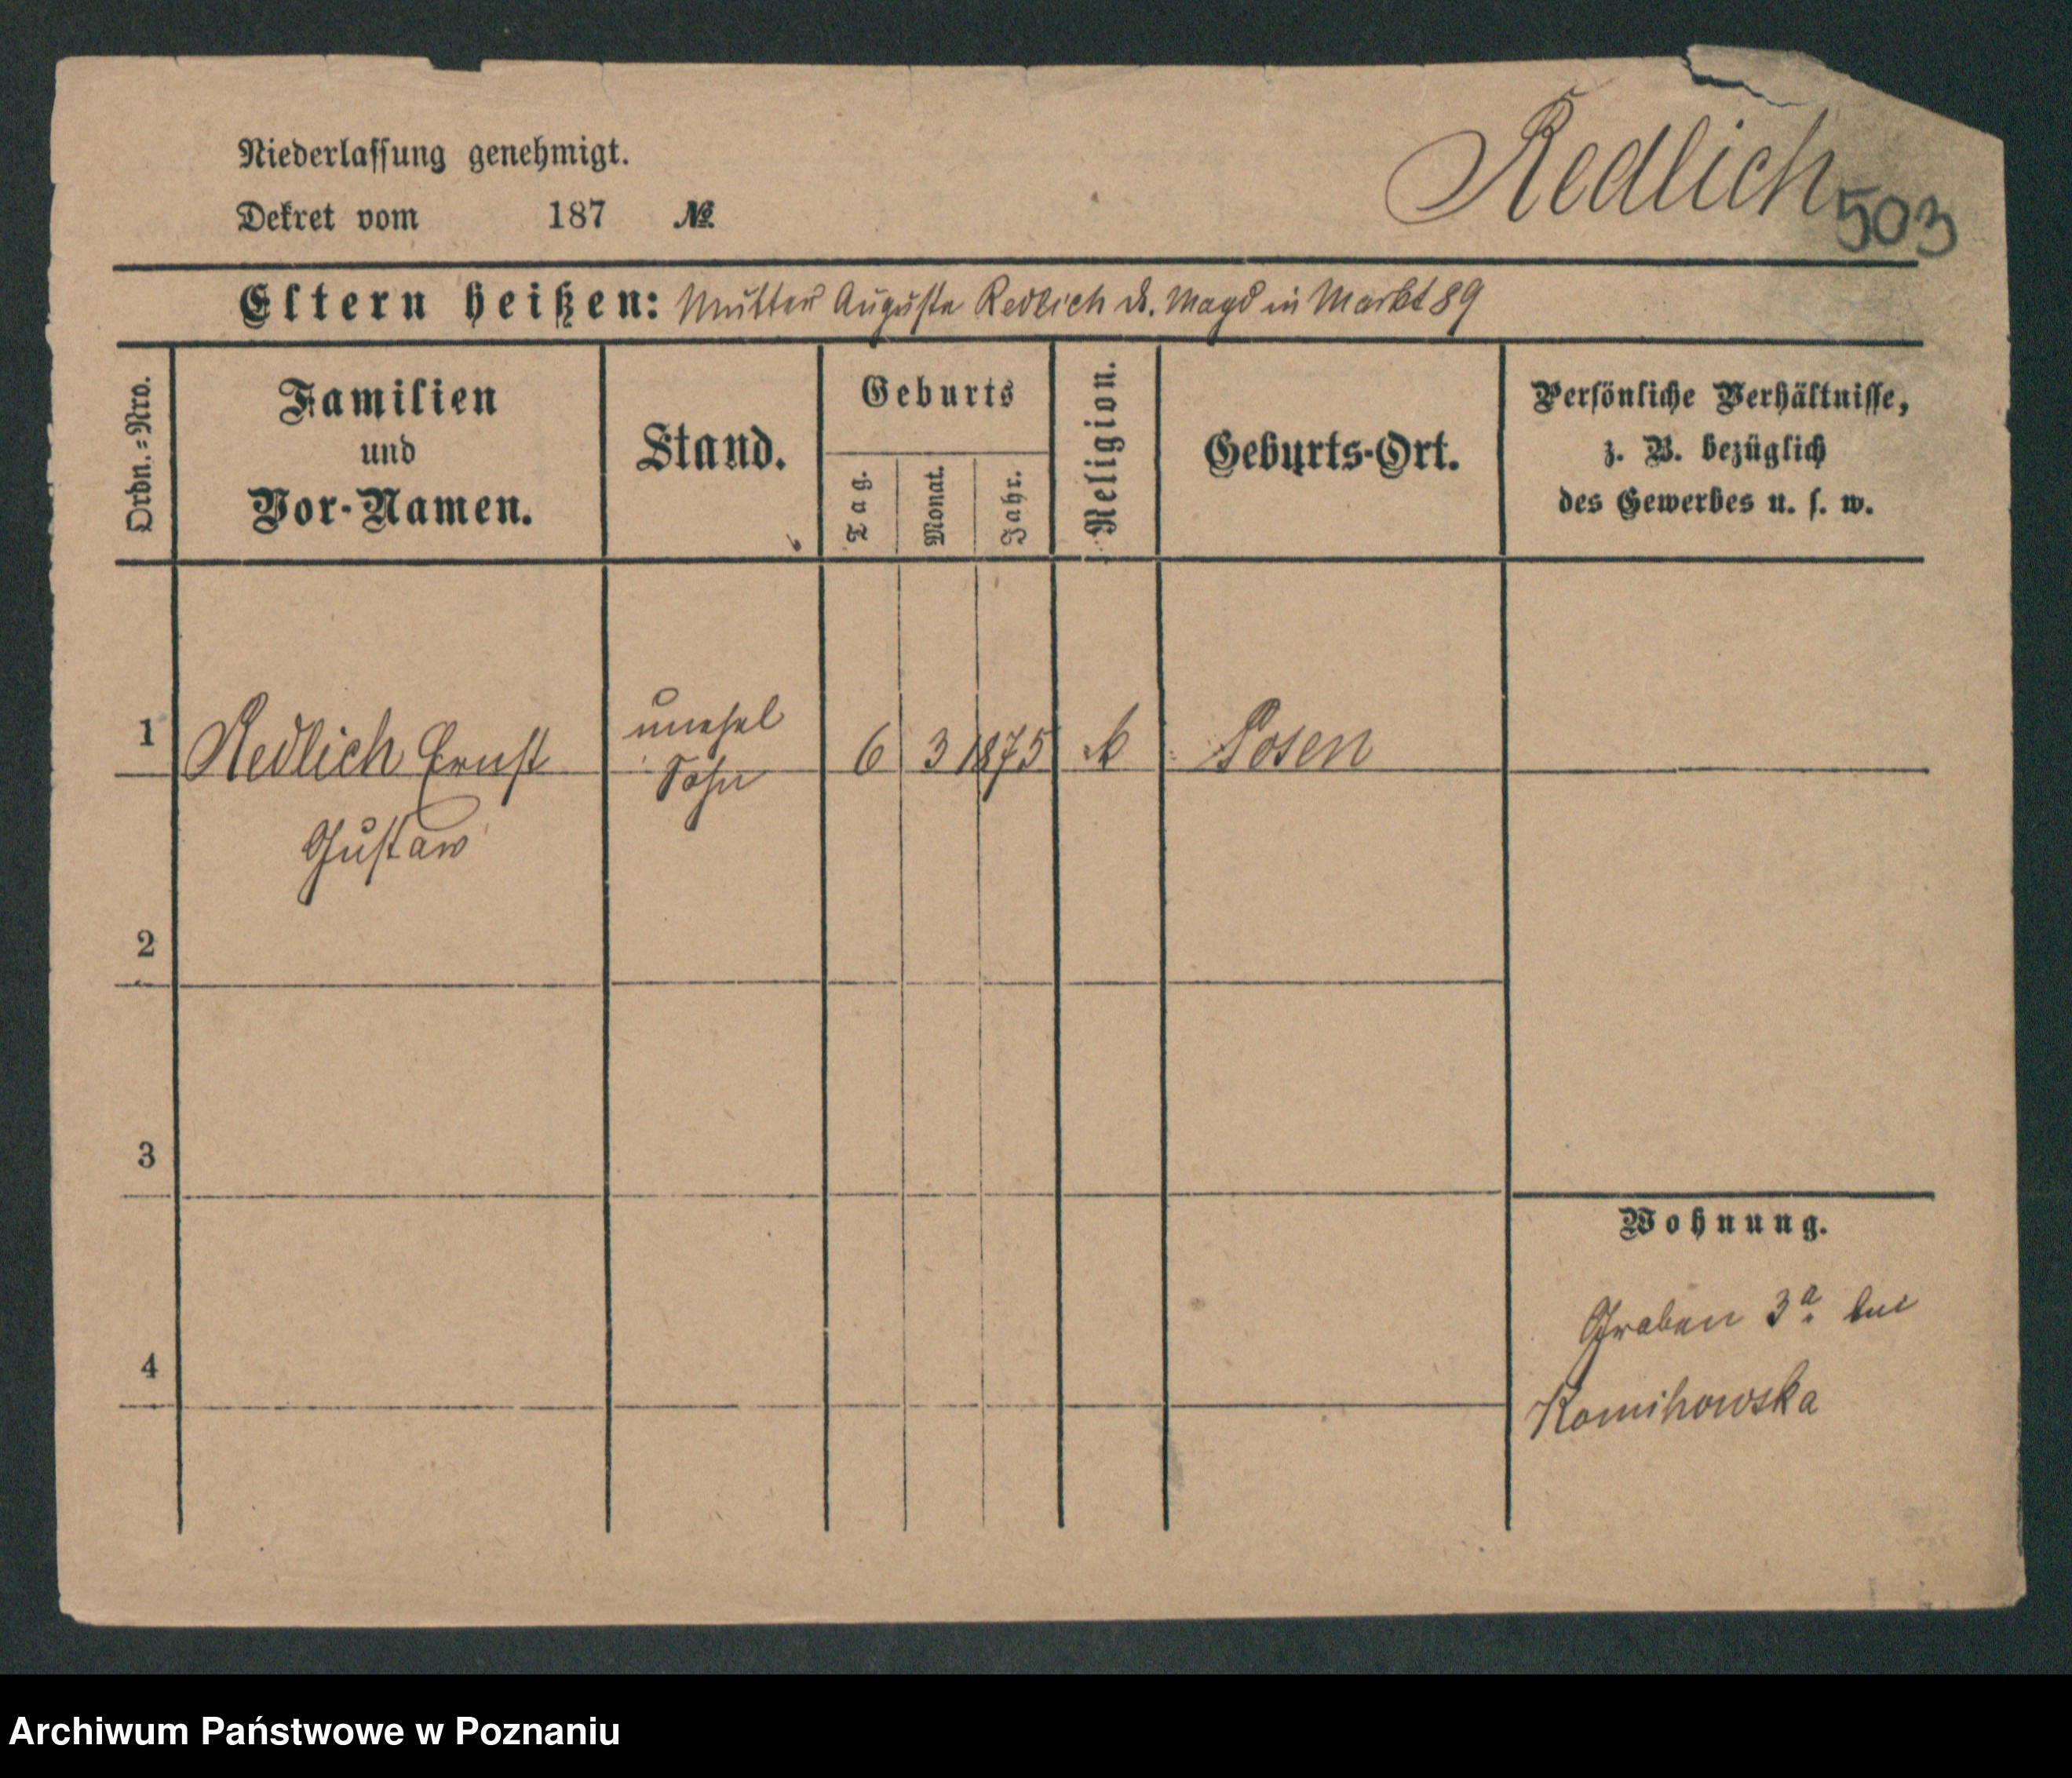 Niederlassung genehmigt.
Dekret vom 187 №
Redlich
503
Eltern heißen: Mutter Auguste Redlich d. Magd in Markt 89
Ordn.=Nro.
Familien
und
Vor-Namen.
Stand.
Geburts
Tag.
Monat.
Jahr.
Religion.
Geburts-Ort.
Persönliche Verhältnisse,
z. B. bezüglich
des Gewerbes u. s. w.
1 Redlich Ernst unehel 6 3 1875 k Posen
Sohn
Gustaw
2
3
Wohnung.
Graben 3a bei
4
Komihowska
Archiwum Państwowe w Poznaniu